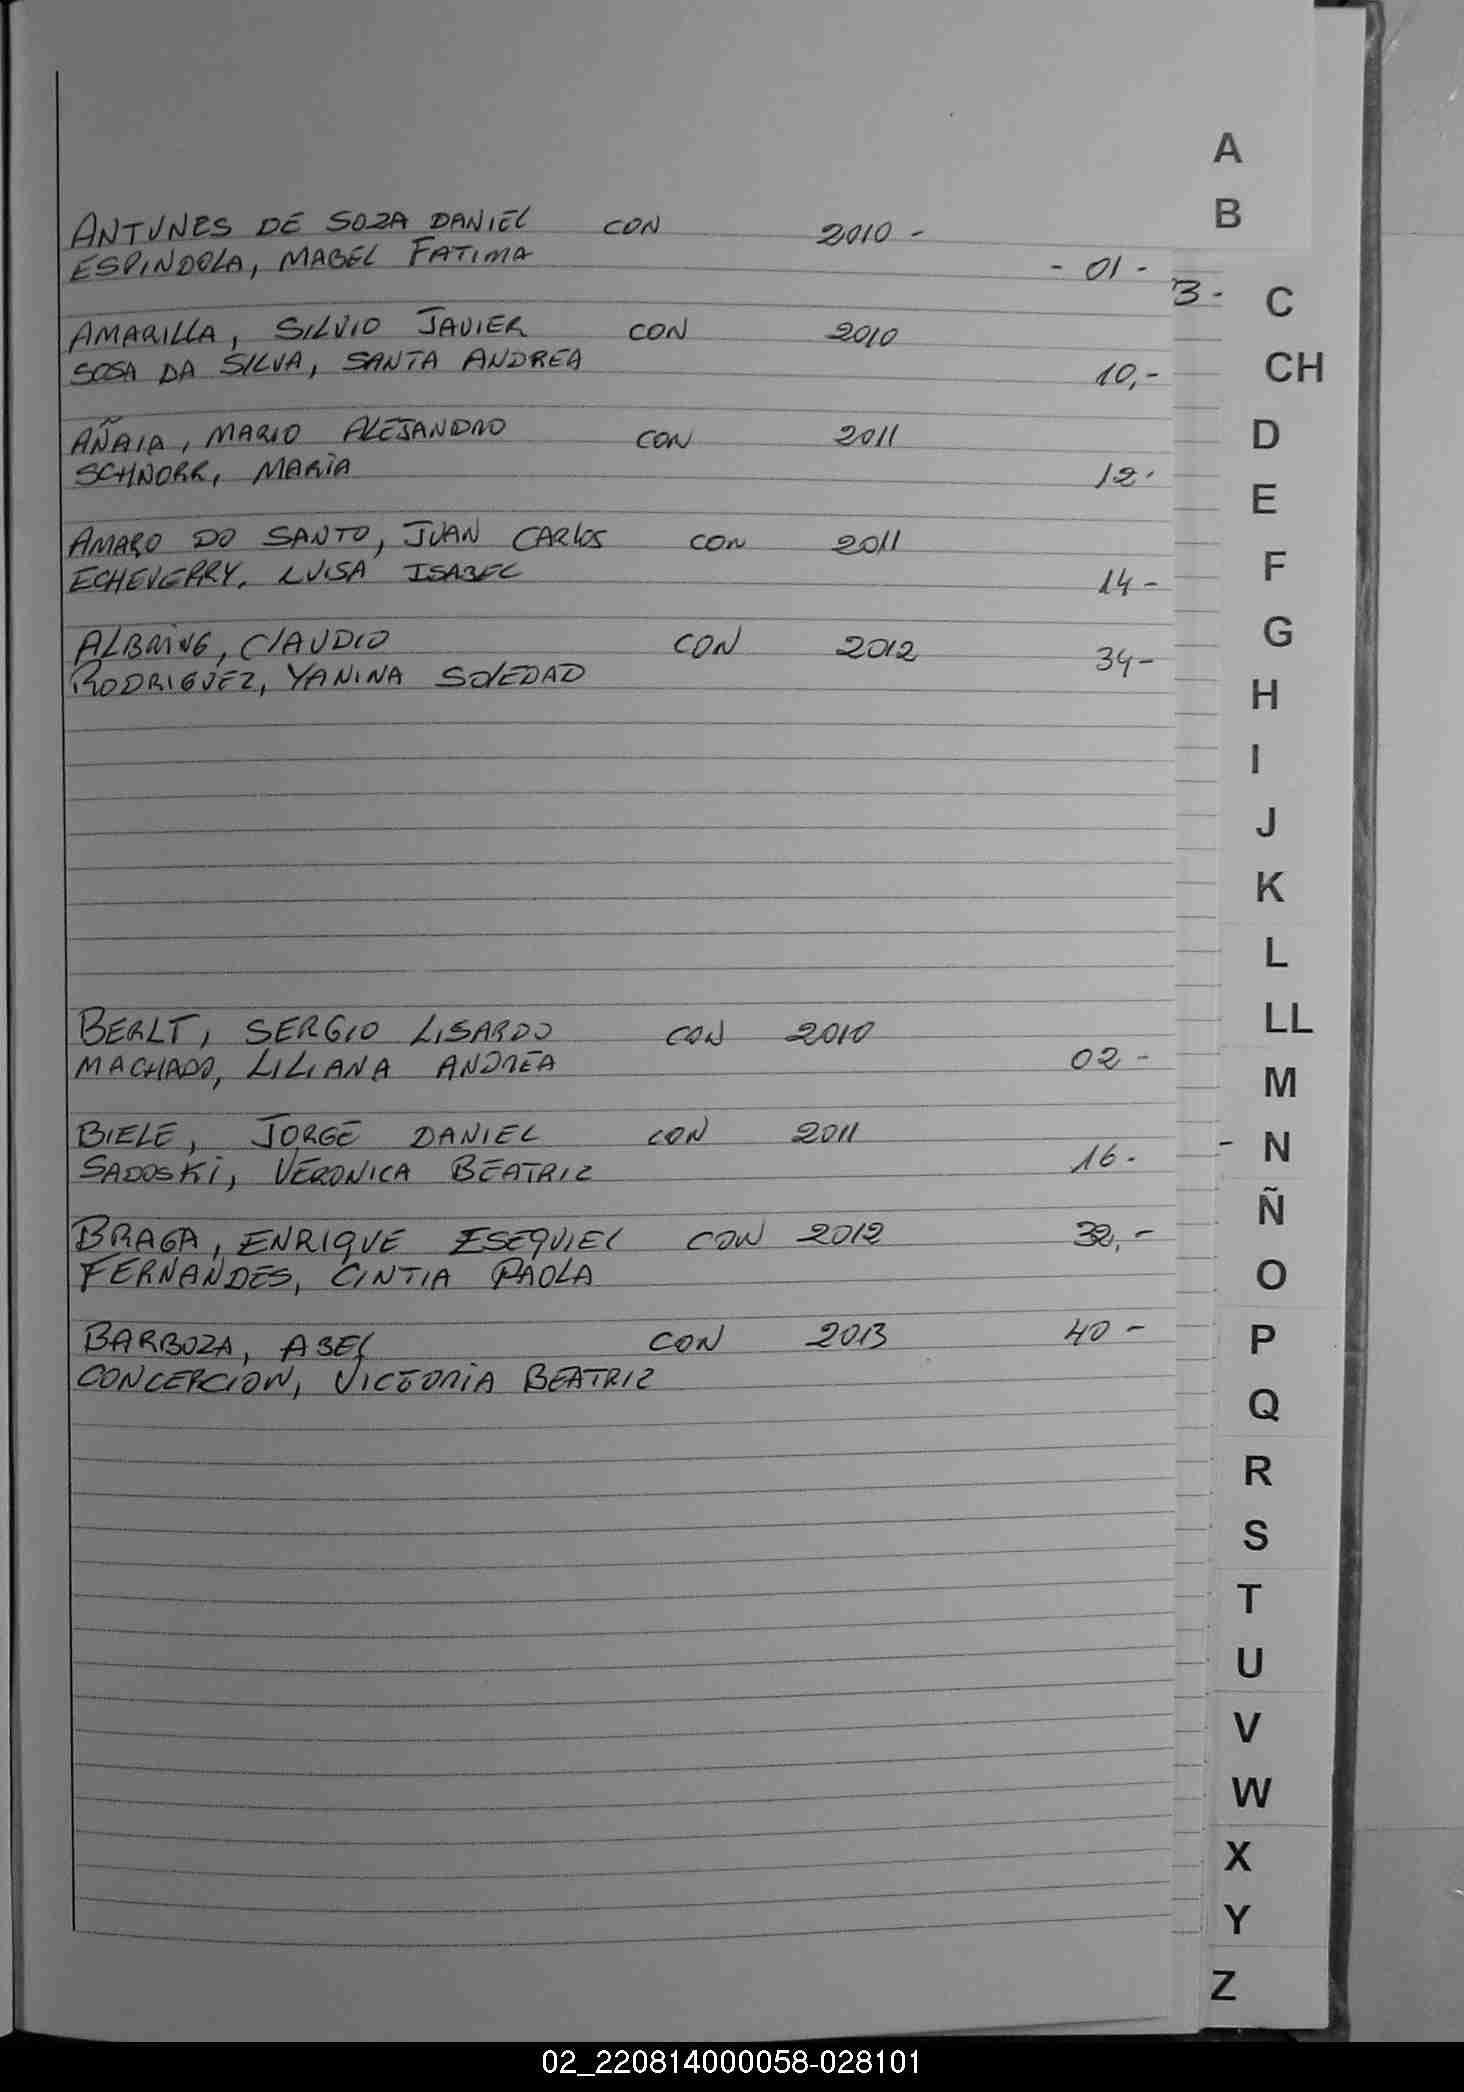 A
B
ANTUNES DE SOZA DANIEL CON 2010 -
ESPINDOLA, MABEL FATIMA - 01 -
3 -
C
AMARILLA, SILVIO JAVIER CON 2010
SOSA DA SILVA, SANTA ANDREA 10,-
CH
AÑAIA, MARIO ALEJANDRO CON 2011
D
SCHNORR, MARIA 12.
E
AMARO DO SANTO, JUAN CARLOS CON 2011
F
ECHEVERRY, LUISA ISABEL 14 -
G
ALBRING, CLAUDIO CON 2012 34 -
RODRIGUEZ, YANINA SOLEDAD
H
I
J
K
L
LL
BERLT, SERGIO LISARDO CON 2010
MACHADO, LILIANA ANDREA 02 -
M
BIELE, JORGE DANIEL CON 2011
- N
SADOSKI, VERONICA BEATRIZ 16.
Ñ
BRAGA, ENRIQUE ESEQUIEL CON 2012 32,-
FERNANDES, CINTIA PAOLA
O
BARBOZA, ABEL CON 2013 40 -
P
CONCEPCION, VICTORIA BEATRIZ
Q
R
S
T
U
V
W
X
Y
Z
02_220814000058-028101